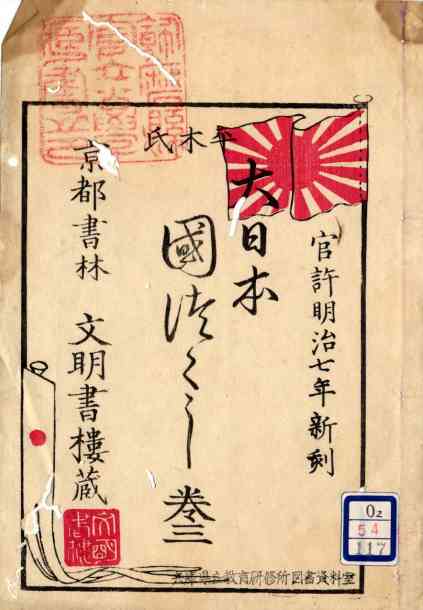 平木氏
官許明治七年新刻
大日本
國つくし 巻三
京都書林 文明書樓蔵
O2
54
117
兵庫県立教育研修所図書資料室